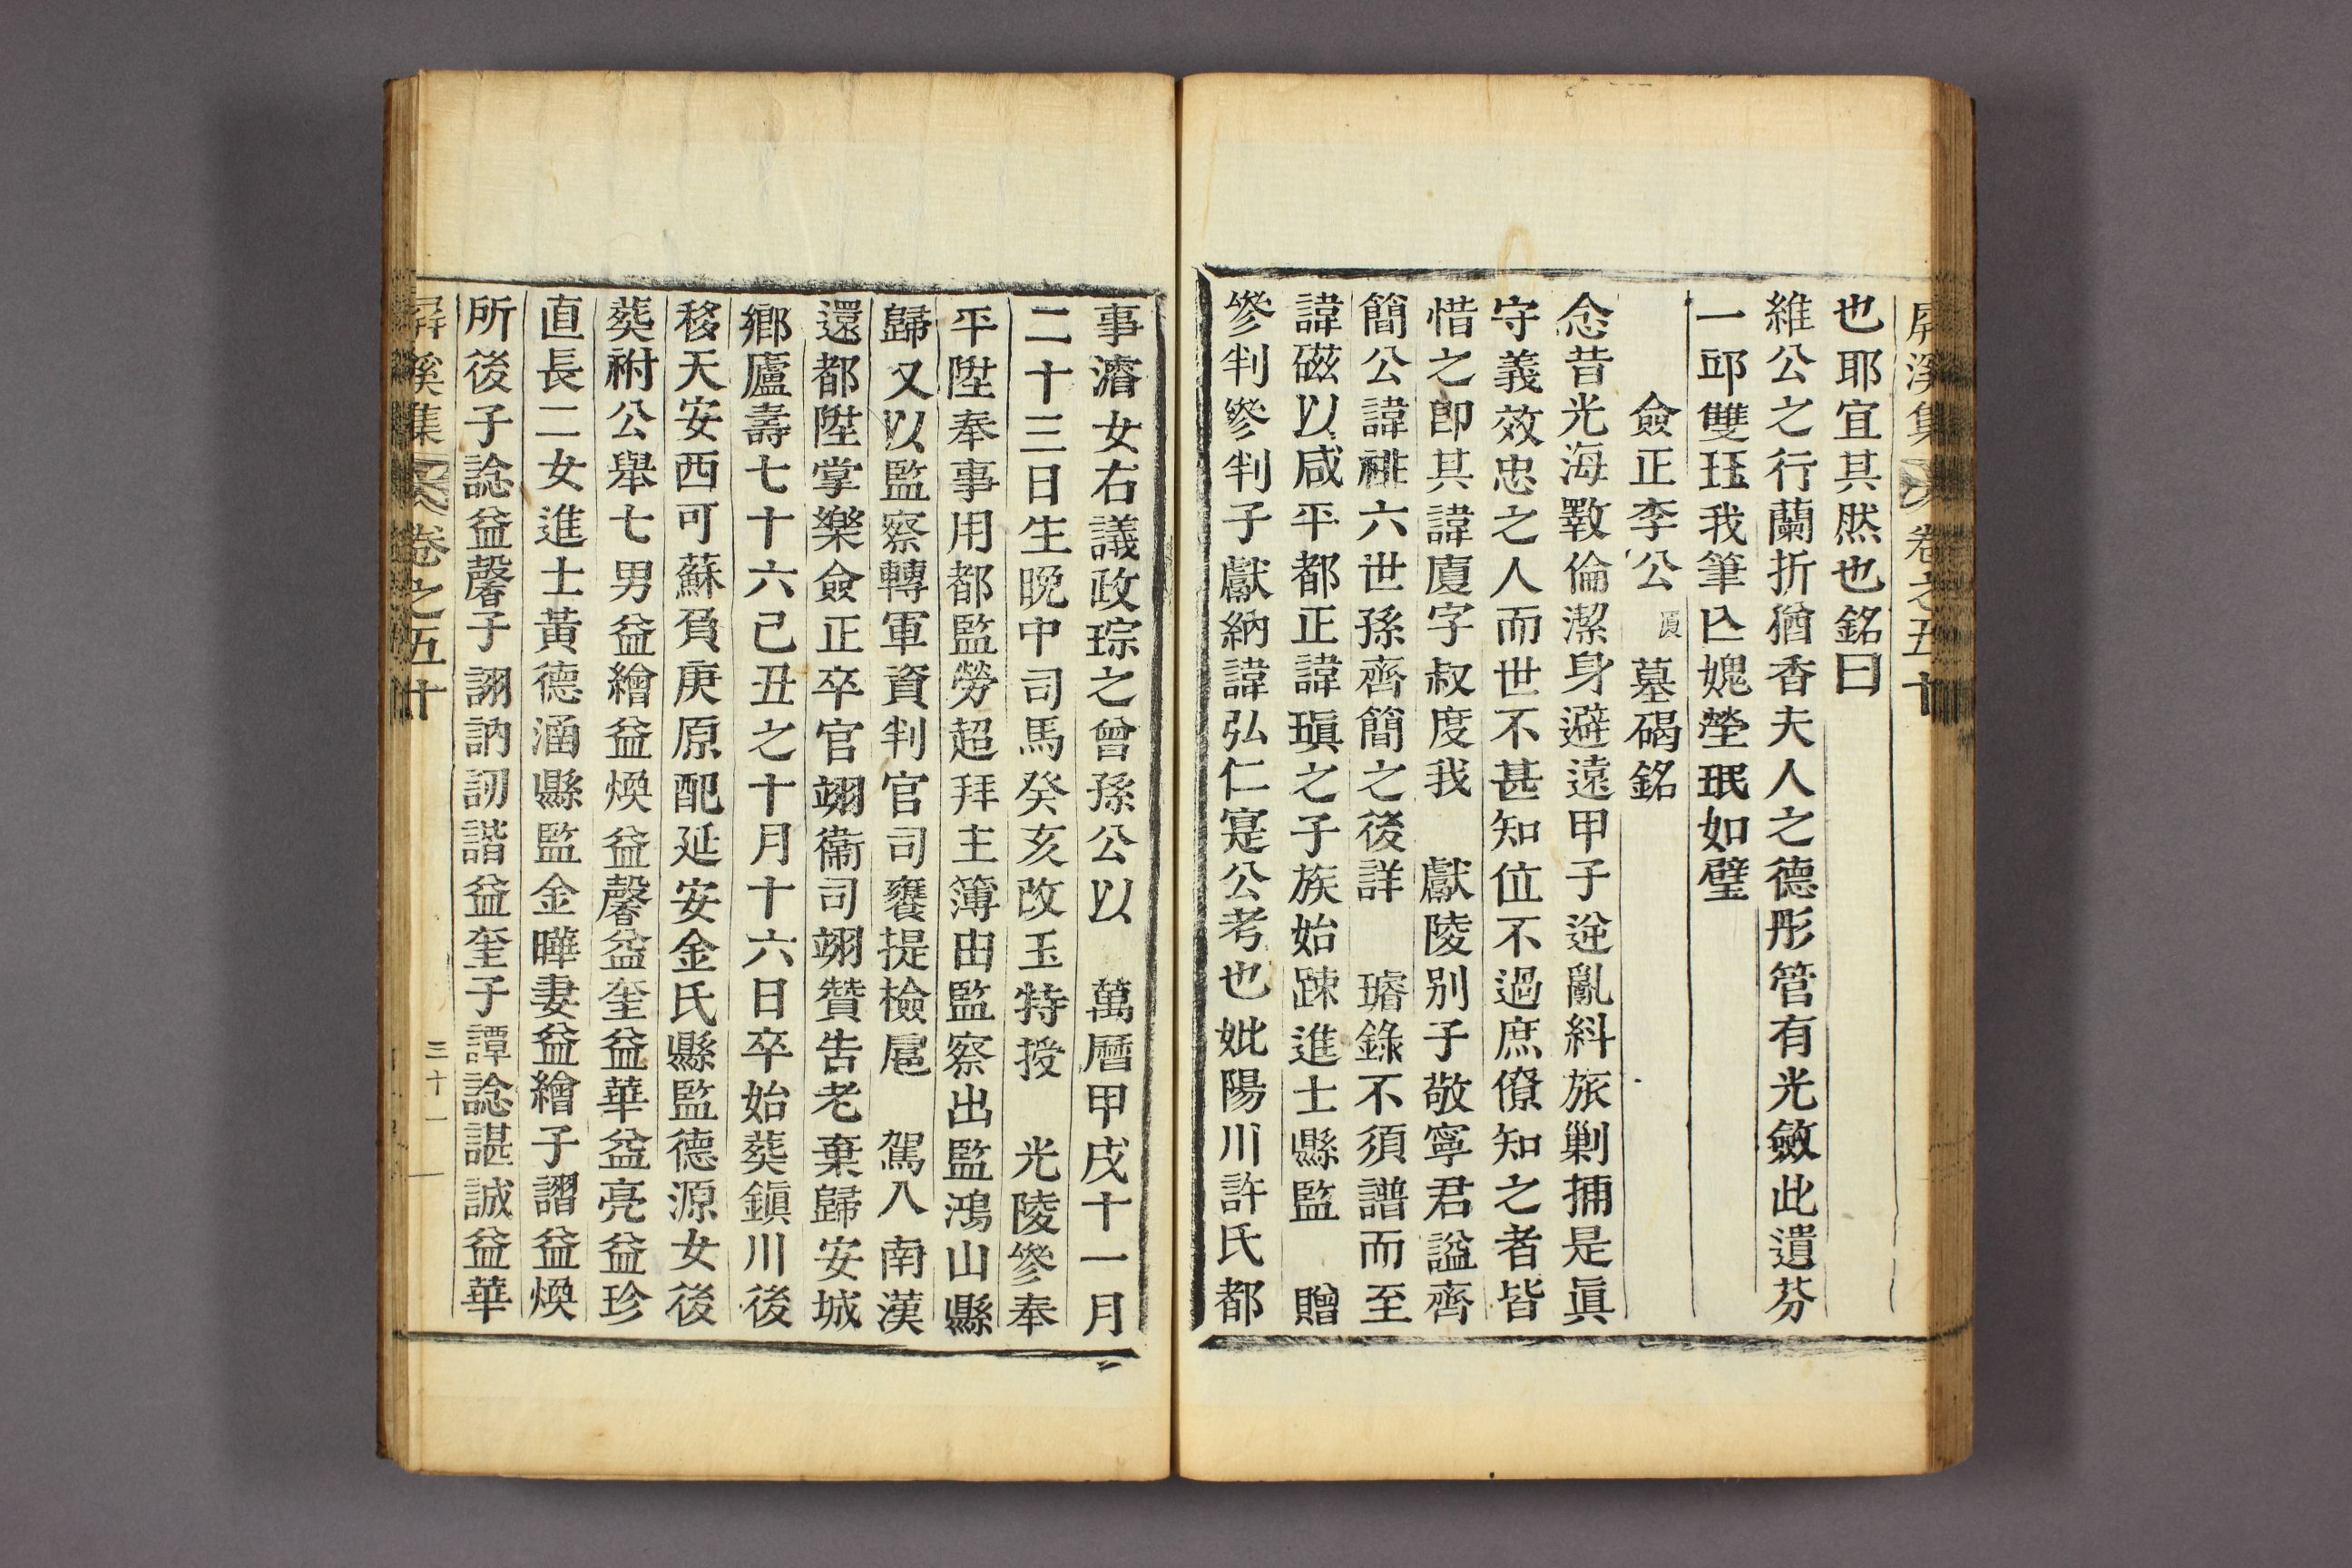 屛溪集 卷之五十
也耶宜其然也銘曰
維公之行蘭折猶香夫人之德彤管有光斂此遺芬
一邱雙珏我筆匪媿瑩珉如璧
僉正李公 墓碣銘
念昔光海斁倫潔身避遠甲子逆亂糾旅剿捕是眞
守義效忠之人而世不甚知位不過庶僚知之者皆
惜之卽其諱廈字叔度我 獻陵別子敬寧君謚齊
簡公諱裶六世孫齊簡之後詳 璿錄不須譜而至
諱磁以咸平都正諱瑱之子族始疎進士縣監 贈
參判參判子獻納諱弘仁寔公考也妣陽川許氏都
事濬女右議政琮之曾孫公以 萬曆甲戌十一月
二十三日生晩中司馬癸亥改玉特授 光陵參奉
平陞奉事用都監勞超拜主簿由監察出監鴻山縣
歸又以監察轉軍資判官司饔提檢扈 駕入南漢
還都陞掌樂僉正卒官翊衞司翊贊告老棄歸安城
鄉廬壽七十六己丑之十月十六日卒始葬鎭川後
移天安西可蘇負庚原配延安金氏縣監德源女後
葬祔公舉七男益繪益煥益馨益奎益華益亮益珍
直長二女進士黃德涵縣監金曄妻益繪子謵益煥
所後子諗益馨子詡訥訒諧益奎子譚諗諶諴益華
屛溪集 卷之五十 三十一